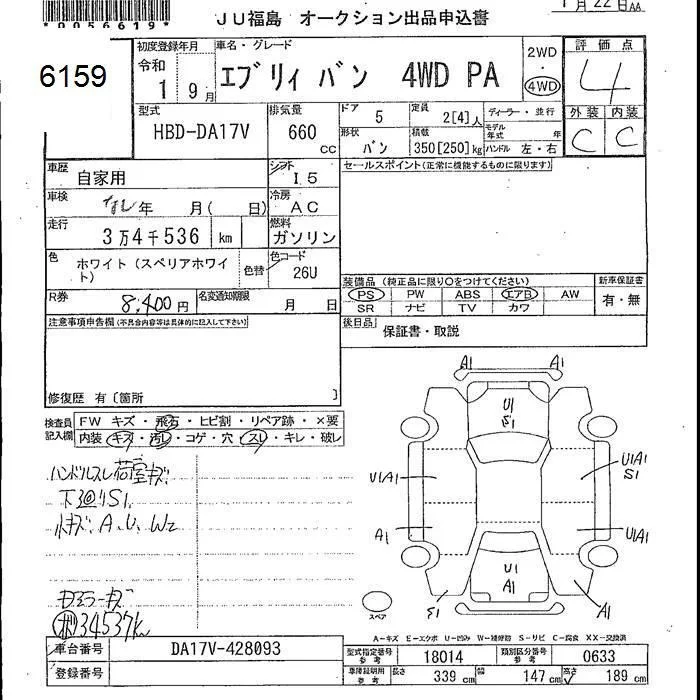 *0056619*
JU福島 オークション出品申込書
1月22日AA
6159
初度登録年月
令和
1 9月
車名・グレード
エブリィ バン 4WD PA
2WD
・
4WD
評価点
4
外装 内装
C C
型式
HBD-DA17V
排気量
660
cc
ドア
5
定員
2[4]人
ディーラー・並行
モデル年式 年
形状
バン
積載
350[250]kg
ハンドル 左・右
車歴
自家用
シフト
I5
セールスポイント(正常に機能するものに限ります)
車検
なし年 月( 日)
冷房
AC
走行
3万4千536 km
燃料
ガソリン
色
ホワイト(スペリアホワイト)
色替
色コード
26U
R券
8,400円
名変通知期限
月 日
装備品(純正品に限り○をつけてください)
PS PW ABS エアB AW
SR ナビ TV カワ
新車保証書
有・無
後日品
保証書・取説
注意事項申告欄(不具合内容等は具体的に記入して下さい)
修復歴 有〔箇所 〕
検査員記入欄
FW キズ・飛石・ヒビ割・リペア跡・×要
内装 キズ・汚レ・コゲ・穴・スレ・キレ・破レ
ハンドルスレ 荷室キズ
下廻りS1
小キズ、A、U、W2
34537km
A1 A1
U1
S1
U1A1
U1A1
S1
A1
U1A1
U1
A1
S1
A1
スペア
A-キズ E-エクボ U-凹み W-補修跡 S-サビ C-腐食 XX-交換済
車台番号
DA17V-428093
登録番号
型式指定番号
参考
18014
類別区分番号
参考
0633
車庫証明用
参考
長さ 339 cm 幅 147 cm 高さ 189 cm